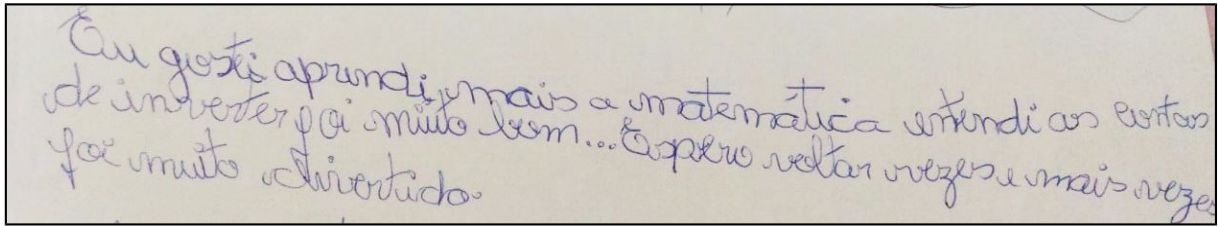 Eu gosti aprindi, mais a matemática entendi as contas
de inverter foi muito bom... Espero voltar vezes e mais vezes
foi muito divertido.